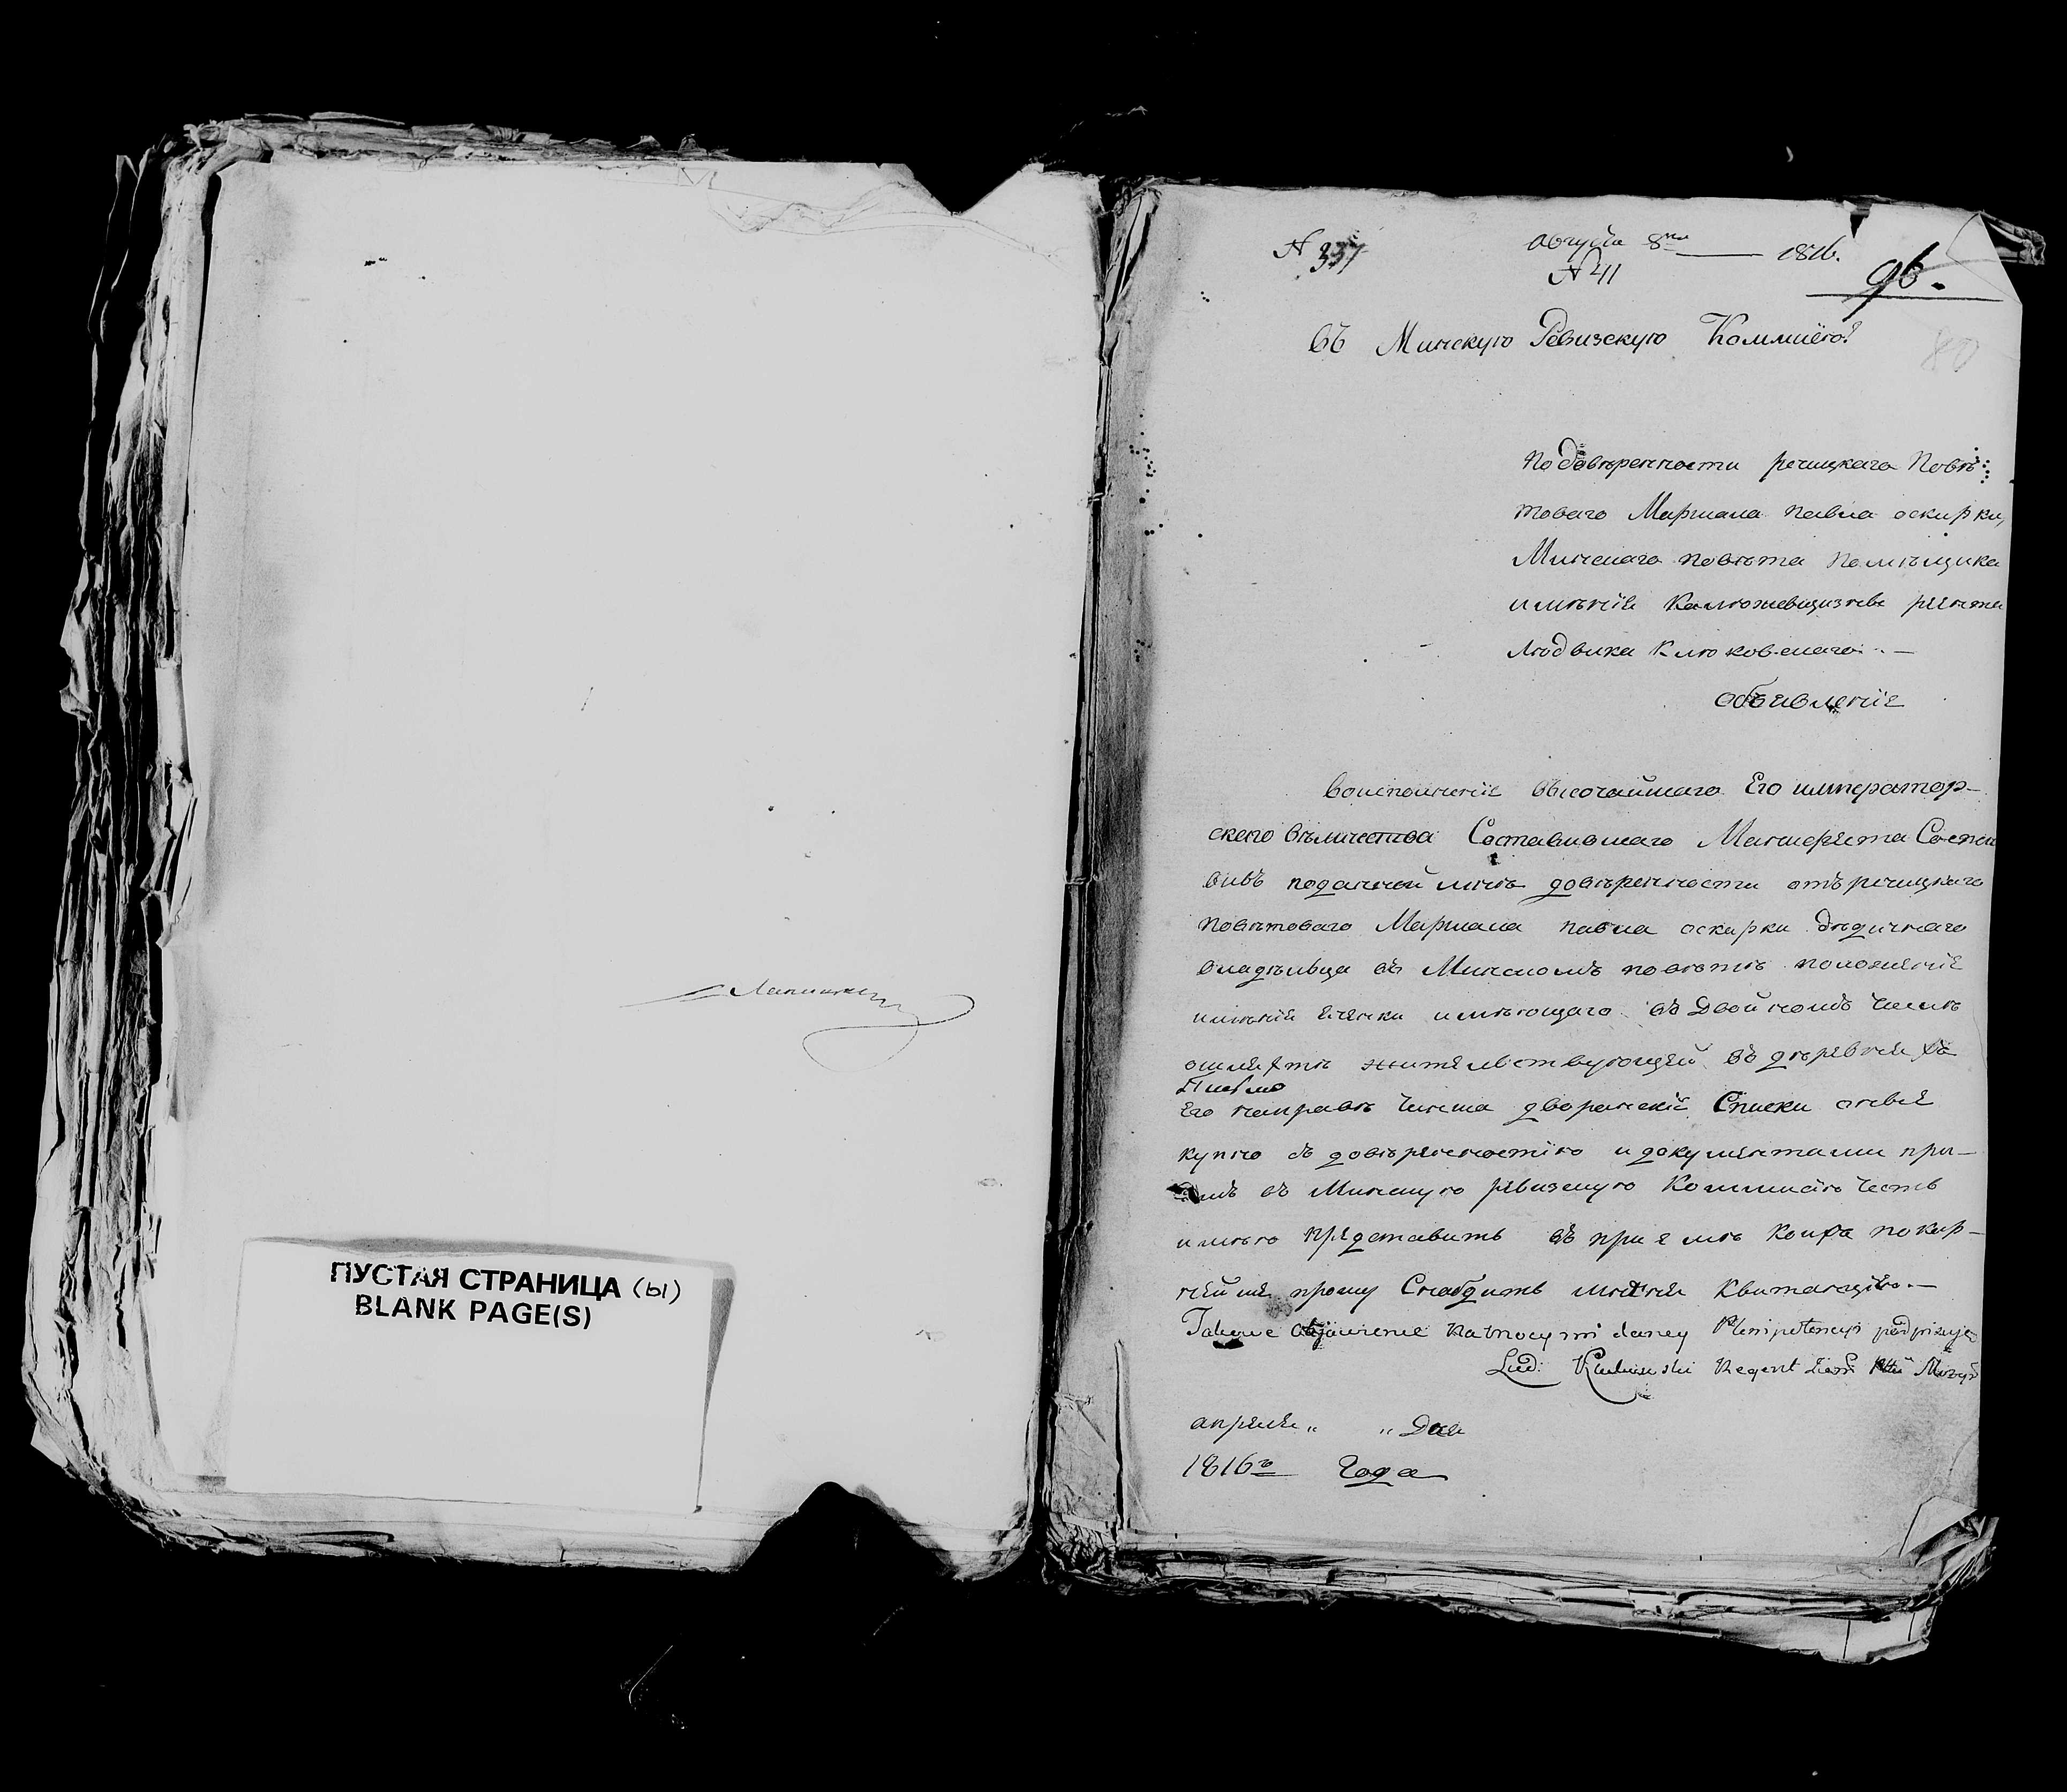 ПУСТАЯ СТРАНИЦА (ы)
BLANK PAGE(S)
N 337
Августа 8го 1816.
N 41
96.
80
Въ Минскую Ревизскую Коммисію
По довѣренности речицкаго Повѣ
товаго Маршала павла оскирки,
Минскаго повѣта Помѣщика
имѣнія
Людвика Клюковскаго
Объявленіе
Воисполненіе Высочайшаго Его император-
скаго Величества Составившаго Манифеста Состо
вивъ поданной мнѣ довѣренности отъ речицкаго
повѣтоваго Маршала павла оскирки дѣдичнаго
владѣльца въ Минскомъ повѣтѣ положеніе
имѣній имѣющаго въ двойномъ числѣ
жительствующей въ деревни
Его направѣ чинша дворянскій Списки
купно съ довѣренностію и документами при-
въ Минскую ревизскую Коммисію честь
имѣю представить въ пріемѣ коихъ покор-
нѣйше прошу Снабдить меня Квитанціею.—
Takowe Objawienie na mocy mi daney Plenipotencyi podpisuję
Lud: Klukowski Regent
апреля „ „ Дня
1816го Года